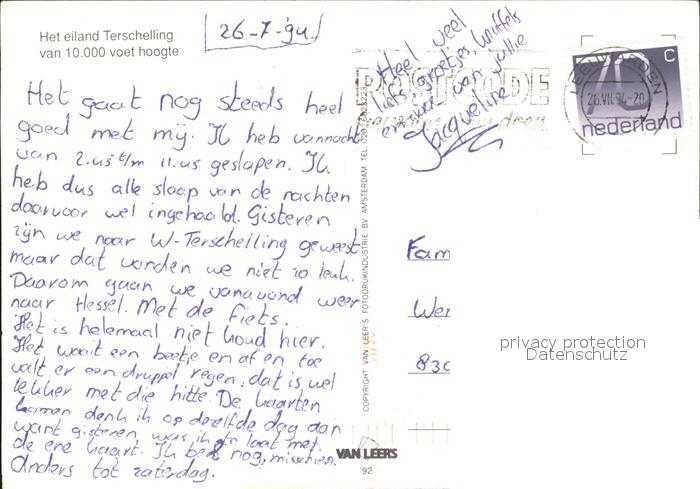 Het eiland Terschelling
van 10.000 voet hoogte
26-7-'94.
Het gaat nog steeds heel
goed met mij. Ik heb vannacht
van 2.us t/m 11.us geslapen. Ik
heb dus alle slaap van de nachten
daarvoor wel ingehaald. Gisteren
zijn we naar W-Terschelling geweest
maar dat vonden we niet zo leuk.
Daarom gaan we vanavond weer
naar Hessel. Met de fiets.
Het is helemaal niet koud hier.
Het waait een beetje en af en toe
valt er een druppel regen, dat is wel
lekker met die hitte. De kaarten
komen denk ik op dezelfde dag aan
want gisteren was ik te laat met
de ene kaart. Ik bel nog, misschien.
Anders tot zaterdag.
Heel veel
liefs, groetjes, knuffels
en van jullie
Jacqueline
POSTCODE
COPYRIGHT VAN LEER'S FOTODRUKINDUSTRIE BV AMSTERDAM TEL.
VAN LEERS
'92
75 C
nederland
LEEUWARDEN
26.VII.94-20
Fam
Wer
830
privacy protection
Datenschutz